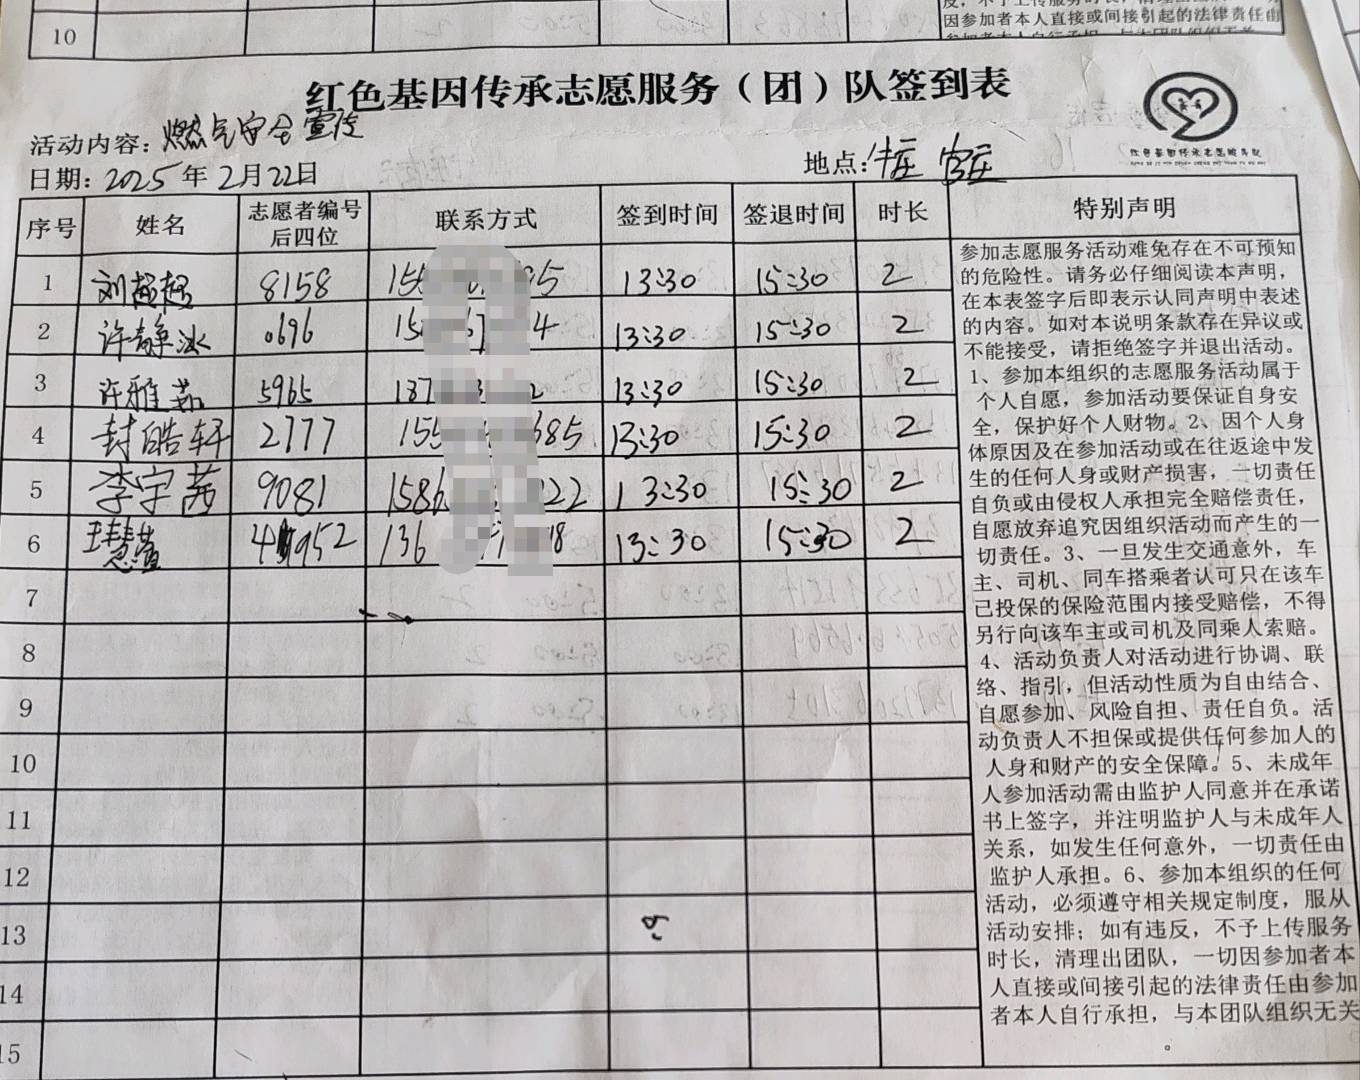 10
因参加者本人直接或间接引起的法律责任由
红色基因传承志愿服务（团）队签到表
活动内容：燃气安全宣传
红色基因传承志愿服务队
日期：2025年2月22日
地点：
序号 姓名 志愿者编号后四位 联系方式 签到时间 签退时间 时长 特别声明
1 刘超超 8158 13:30 15:30 2
2 许静冰 0696 13:30 15:30 2
3 许雅茹 5965 13:30 15:30 2
4 封皓轩 2777 13:30 15:30 2
5 李宇茜 9081 13:30 15:30 2
6 王慧萱 4952 13:30 15:30 2
7
8
9
10
11
12
13
14
15
参加志愿服务活动难免存在不可预知
的危险性。请务必仔细阅读本声明，
在本表签字后即表示认同声明中表述
的内容。如对本说明条款存在异议或
不能接受，请拒绝签字并退出活动。
1、参加本组织的志愿服务活动属于
个人自愿，参加活动要保证自身安
全，保护好个人财物。2、因个人身
体原因及在参加活动或在往返途中发
生的任何人身或财产损害，一切责任
自负或由侵权人承担完全赔偿责任，
自愿放弃追究因组织活动而产生的一
切责任。3、一旦发生交通意外，车
主、司机、同车搭乘者认可只在该车
已投保的保险范围内接受赔偿，不得
另行向该车主或司机及同乘人索赔。
4、活动负责人对活动进行协调、联
络、指引，但活动性质为自由结合、
自愿参加、风险自担、责任自负。活
动负责人不担保或提供任何参加人的
人身和财产的安全保障。5、未成年
人参加活动需由监护人同意并在承诺
书上签字，并注明监护人与未成年人
关系，如发生任何意外，一切责任由
监护人承担。6、参加本组织的任何
活动，必须遵守相关规定制度，服从
活动安排；如有违反，不予上传服务
时长，清理出团队，一切因参加者本
人直接或间接引起的法律责任由参加
者本人自行承担，与本团队组织无关
。